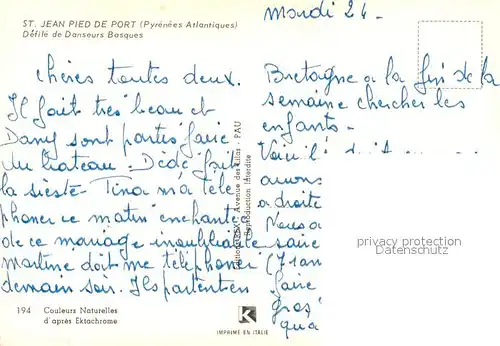 ST. JEAN PIED DE PORT (Pyrénées Atlantiques)
Défilé de Danseurs Basques
chères toutes deux.
Il fait très beau et
Dany sont partis faire
du bateau. Dédé fait
la sieste. Tina m'a télé
phoner ce matin enchantée
de ce mariage inoubliable
martine doit me téléphoner
demain soir. Ils partent en
194 Couleurs Naturelles
d'après Ektachrome
Avenue des Lilas - PAU
Reproduction Interdite
K
IMPRIMÉ EN ITALIE
mardi 24 -
Bretagne a la fin de la
semaine chercher les
enfants -
avons
a droite
Nous a
faire
gros
qua
privacy protection
Datenschutz